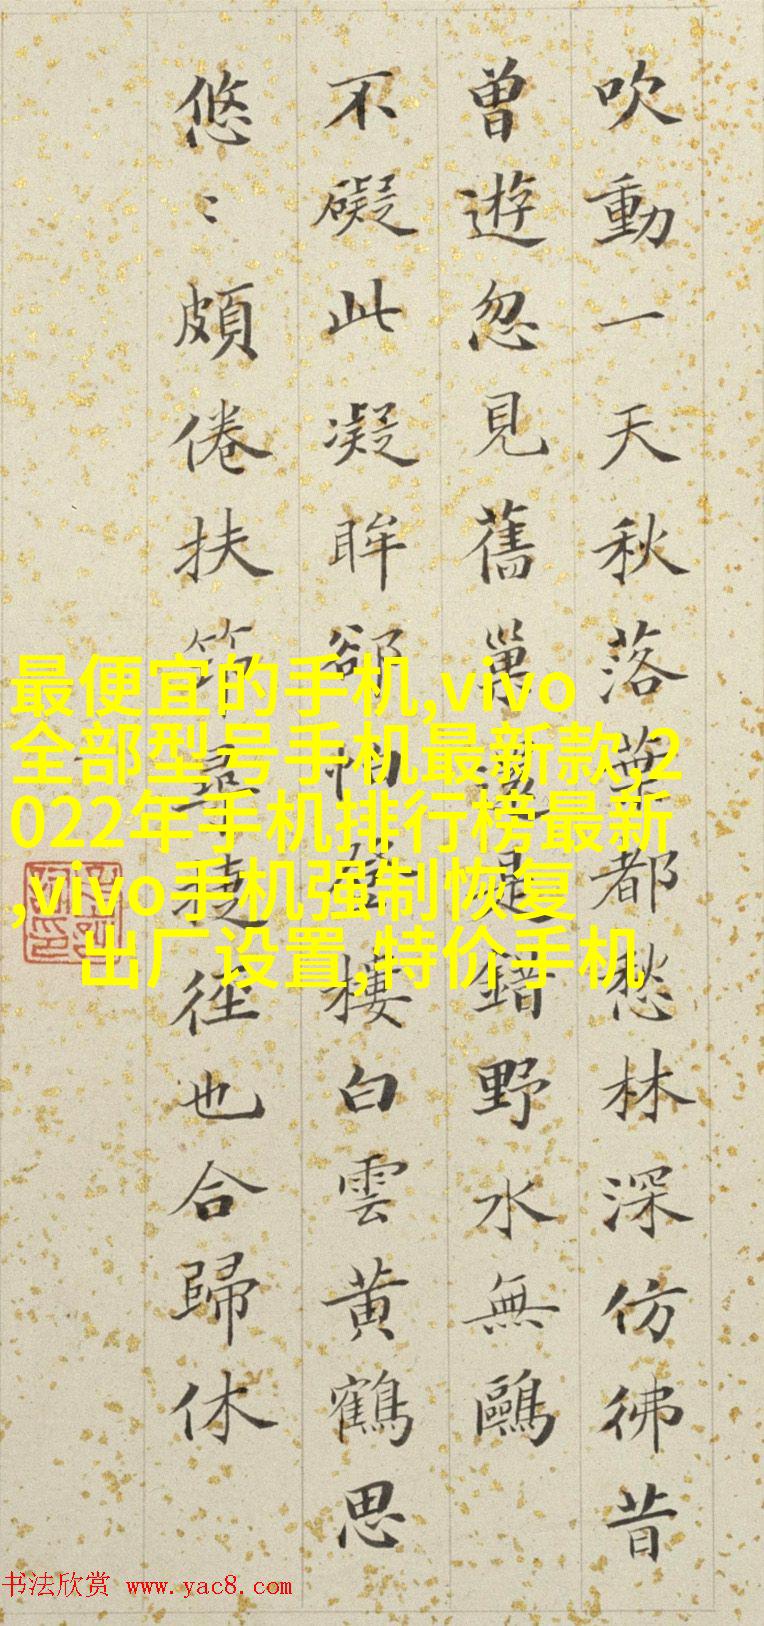 吹動一天秋落葉都愁林深仿彿昔
曾遊忽見舊巢還是錯野水無鷗
不礙此凝眸卻怕登樓白雲黄鶴思
悠〻頗倦扶筇尋捷徑也合歸休
最便宜的手机,vivo
全部型号手机最新款,2
022年手机排行榜最新
,vivo手机强制恢复
出厂设置,特价手机
书法欣赏 www.yac8.com